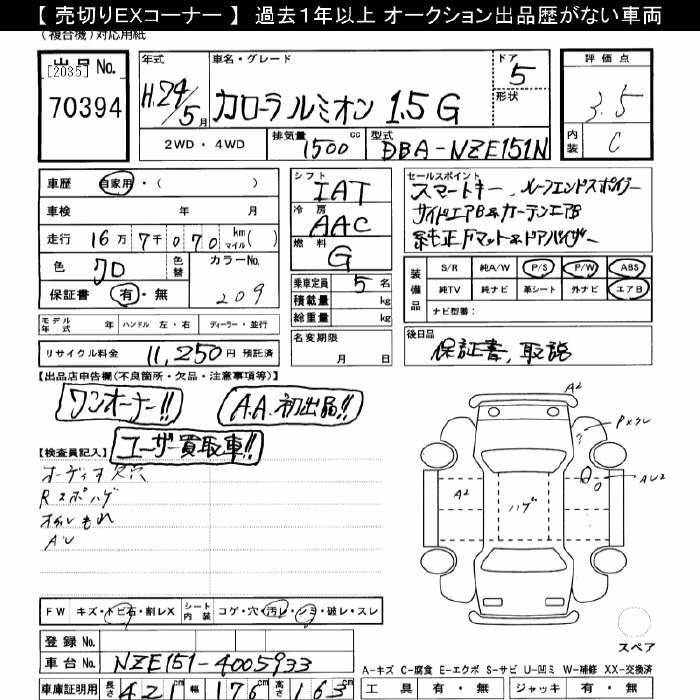 【 売切りEXコーナー 】 過去1年以上 オークション出品歴がない車両
(複合機)対応用紙
出品No. [2035] 70394
年式 H.24/5月
車名・グレード カローラルミオン 1.5 G
ドア 5
形状
評価点 3.5
内装 C
2WD ・ 4WD
排気量 1500 cc
型式 DBA-NZE151N
車歴 自家用・( )
車検 年 月
走行 16万 7千 0 7 0 km マイル ( )
色 クロ 色替 カラーNo. 209
保証書 有・無
シフト IAT
冷房 AAC
燃料 G
乗車定員 5 名
積載量 kg
総重量 kg
名変期限 月 日
セールスポイント
スマートキー、ルーフエンドスポイラー
サイドエアB&カーテンエアB
純正Fマット&ドアバイザー
装備品 S/R 純A/W P/S P/W ABS
純TV 純ナビ 革シート 外ナビ エアB
ナビ型番:
モデル年式 年 ハンドル 左・右 ディーラー・並行
リサイクル料金 11,250 円 預託済
後日品 保証書, 取説
【出品店申告欄(不良箇所・欠品・注意事項等)】
ワンオーナー!! A.A.初出品!!
ユーザー買取車!!
【検査員記入】
オーディオ欠穴
Rスポハゲ
オイルもれ
AU
A2
A2
ハゲ
AU2
FW キズ・トビ石・割レX シート内装 コゲ・穴・汚レ・シミ・破レ・スレ
登録No.
車台No. NZE151-4005933
スペア
A-キズ C-腐食 E-エクボ S-サビ U-凹ミ W-補修 XX-交換済
車庫証明用 長さ 421cm 幅 176cm 高さ 163
工具 有・無 ジャッキ 有・無